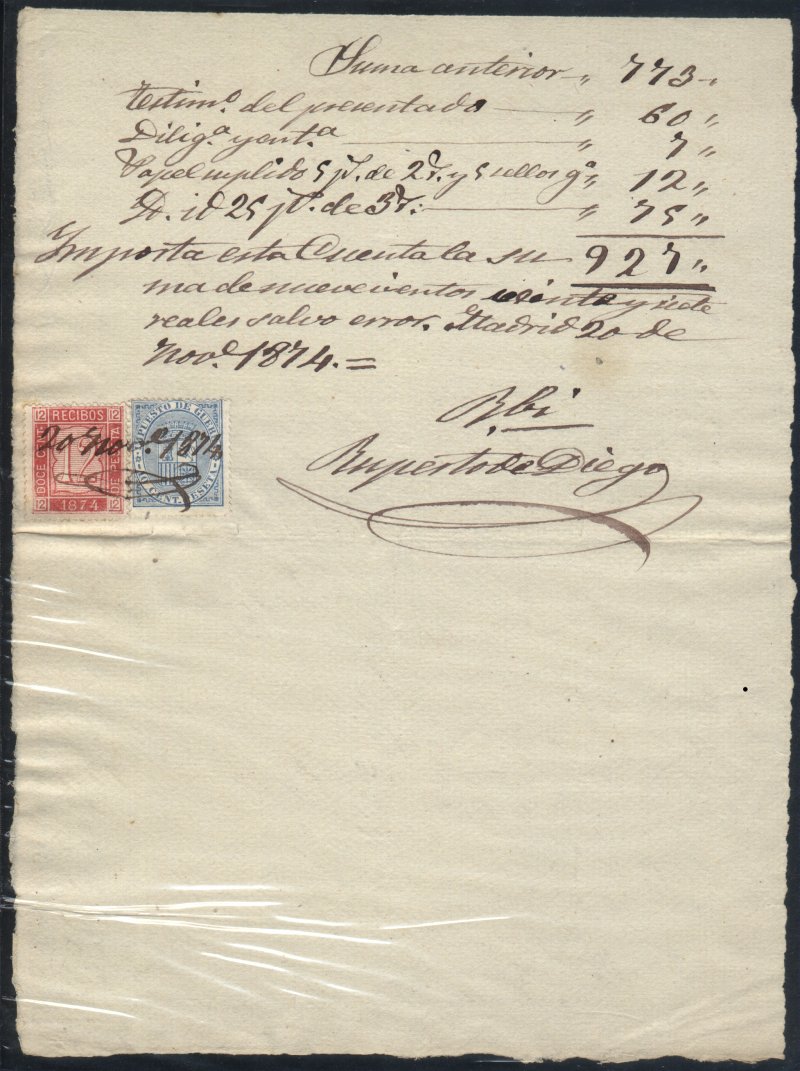 Suma anterior „ 773 „
Testim.º del presentado „ 60 „
Dilig.ª y ent.ª „ 7 „
Papel suplido 5 p.s de 2 r. y 5 sellos g.ª „ 12 „
Id. id 25 p.s de 3 r. „ 75 „
Importa esta Cuenta la su 927 „
ma de nuevecientos veinte y siete
reales salvo error. Madrid 20 de
Nov.e 1874. =
R.bi
Ruperto de Diego
12 RECIBOS 12
DOCE CENT.
DE PESETA
12 1874 12
IMPUESTO DE GUERRA
10 CENT. PESETA
20 Nov.e 1874